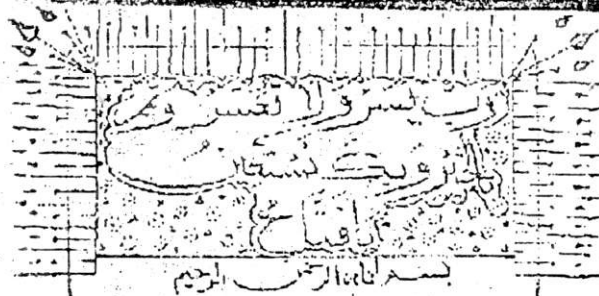 رب يسر ولا تعسر
وبك نستعين
يا فتاح
بسم الله الرحمن الرحيم